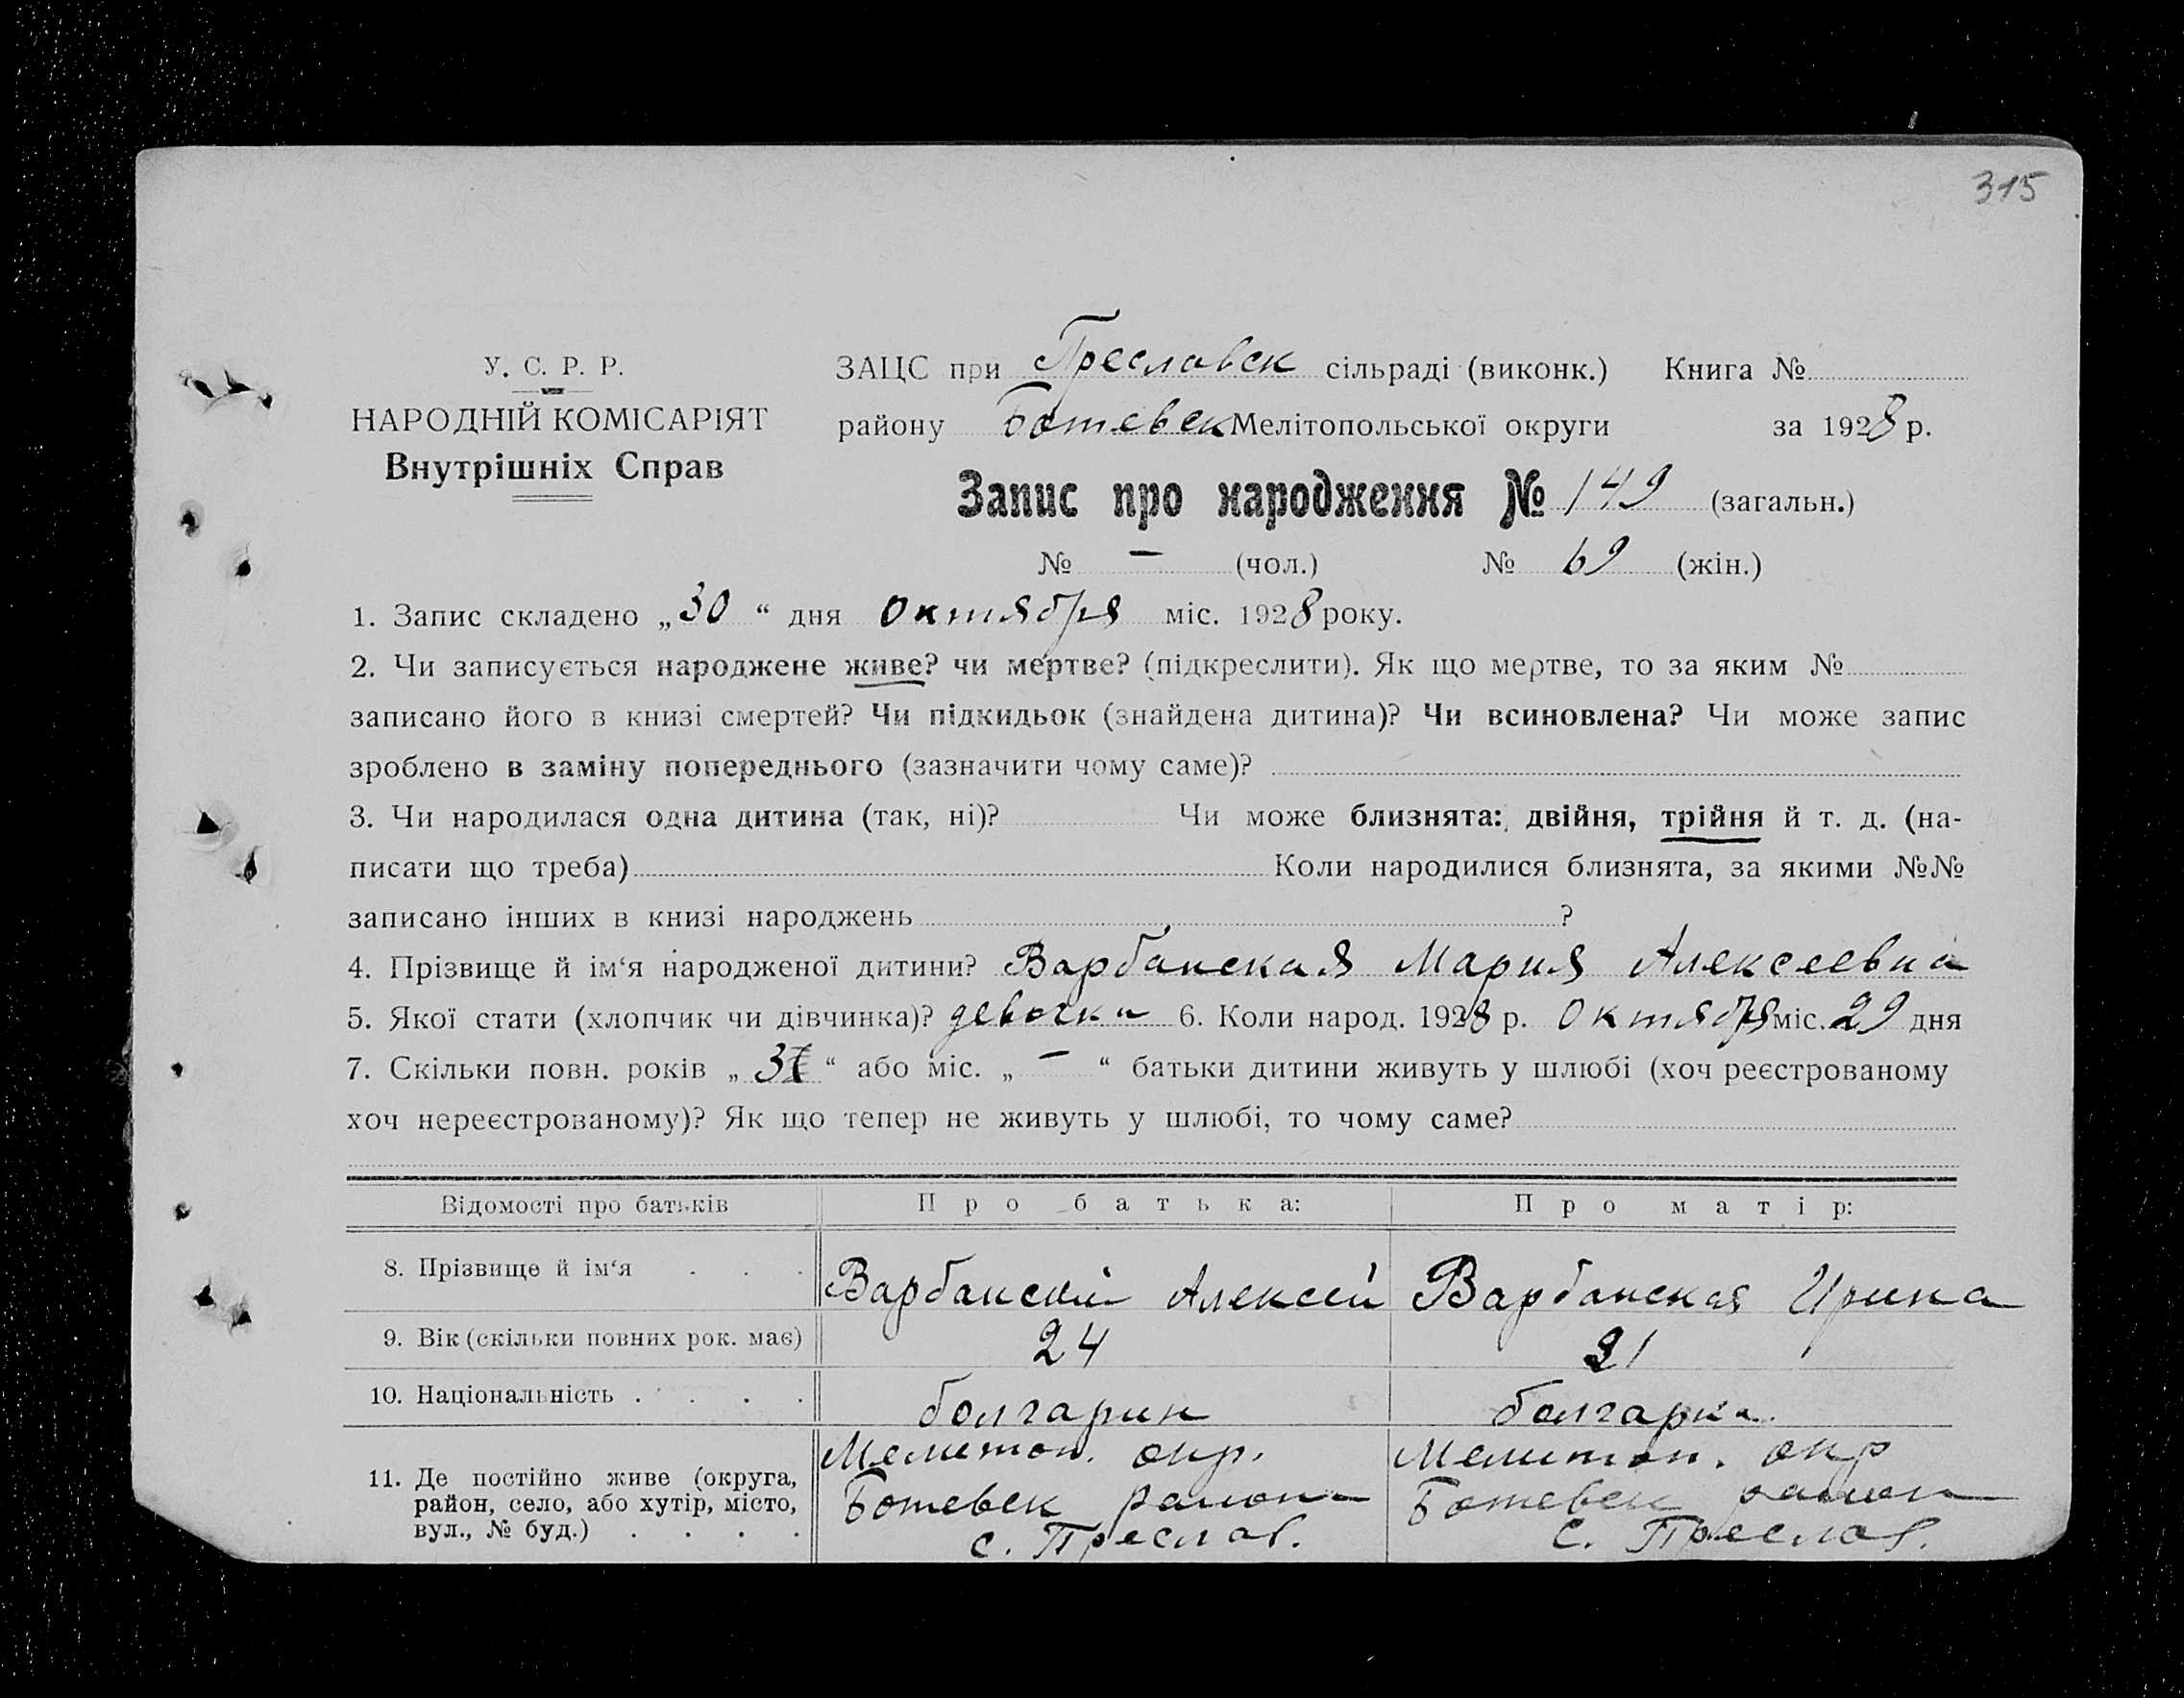 315
У. С. Р. Р.
НАРОДНІЙ КОМІСАРІЯТ
Внутрішніх Справ
ЗАЦС при Преславск сільраді (виконк.) Книга №
району Ботевск Мелітопольської округи за 1928 р.
Запис про народження № 149 (загальн.)
№ — (чол.) № 69 (жін.)
1. Запис складено „30“ дня октября міс. 1928 року.
2. Чи записується народжене живе? чи мертве? (підкреслити). Як що мертве, то за яким №
записано його в книзі смертей? Чи підкидьок (знайдена дитина)? Чи всиновлена? Чи може запис
зроблено в заміну попереднього (зазначити чому саме)?
3. Чи народилася одна дитина (так, ні)? Чи може близнята: двійня, трійня й т. д. (на-
писати що треба) Коли народилися близнята, за якими №№
записано інших в книзі народжень ?
4. Прізвище й ім‘я народженої дитини? Варбанская Мария Алексеевна
5. Якої стати (хлопчик чи дівчинка)? девочка 6. Коли народ. 1928 р. Октября міс. 29 дня
7. Скільки повн. років „3“ або міс. „—“ батьки дитини живуть у шлюбі (хоч реєстрованому
хоч нереєстрованому)? Як що тепер не живуть у шлюбі, то чому саме?
Відомості про батьків Про батька: Про матір:
8. Прізвище й ім‘я . . . Варбанский Алексей Варбанская Ирина
9. Вік (скільки повних рок. має) 24 21
10. Національність . . . . болгарин болгарка
11. Де постійно живе (округа, район, село, або хутір, місто, вул., № буд.) . . . .
Мелитоп. окр. Ботевск района с. Преслав.
Мелитоп. окр Ботевск район с. Преслав.